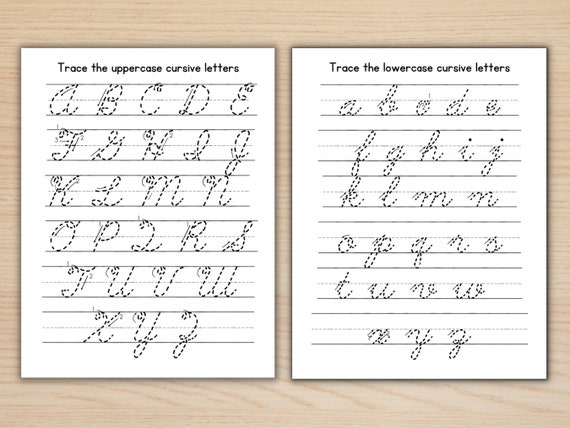 Trace the uppercase cursive letters
A B C D E
F G H I J
K L M N
O P Q R S
T U V W
X Y Z
Trace the lowercase cursive letters
a b c d e
f g h i j
k l m n
o p q r s
t u v w
x y z